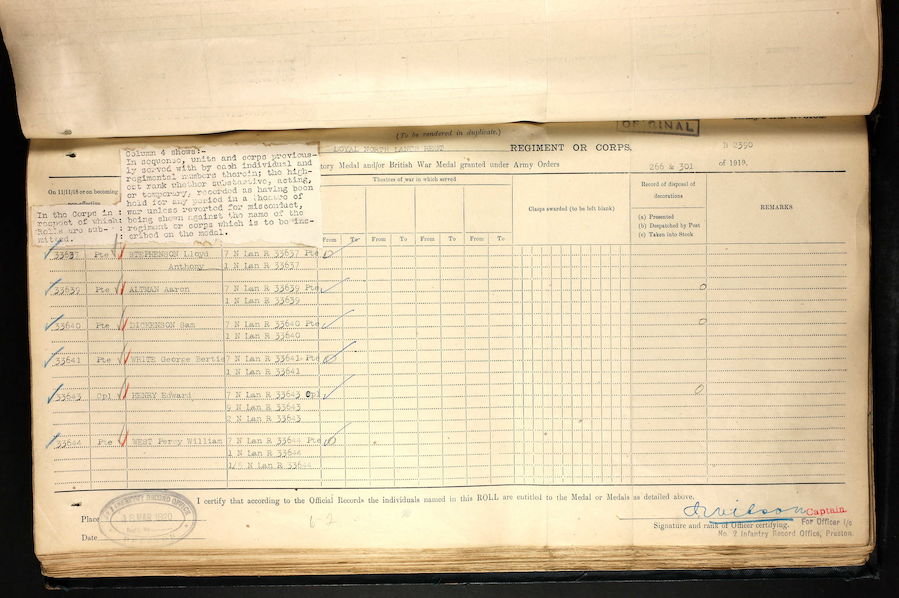 (To be rendered in duplicate.)
ORIGINAL
LOYAL NORTH LANCS REGT
REGIMENT OR CORPS.
B 2390
Column 4 shows:-
In sequence, units and corps previous-
ly served with by each individual and
regimental numbers therein; the high-
est rank whether substantive, acting,
or temporary, recorded as having been
held for any period in a theatre of
war unless reverted for misconduct,
being shown against the name of the
regiment or corps which is to be ins-
cribed on the medal.
In the Corps in :
respect of which:
Rolls are sub- :
mitted. :
tory Medal and/or British War Medal granted under Army Orders
266 & 301
of 1919.
On 11/11/18 or on becoming
Theatres of war in which served
Clasps awarded (to be left blank)
Record of disposal of
decorations
(a) Presented
(b) Despatched by Post
(c) Taken into Stock
REMARKS
From To From To From To From To
33637 Pte STEPHENSON Lloyd 7 N Lan R 33637 Pte
Anthony 1 N Lan R 33637
33639 Pte ALTMAN Aaron 7 N Lan R 33639 Pte
1 N Lan R 33639
33640 Pte DICKENSON Sam 7 N Lan R 33640 Pte
1 N Lan R 33640
33641 Pte WHITE George Bertie 7 N Lan R 33641 Pte
1 N Lan R 33641
33643 Cpl HENRY Edward 7 N Lan R 33643 Cpl
9 N Lan R 33643
2 N Lan R 33643
33644 Pte WEST Percy William 7 N Lan R 33644 Pte
1 N Lan R 33644
1/5 N Lan R 33644
I certify that according to the Official Records the individuals named in this ROLL are entitled to the Medal or Medals as detailed above.
INFANTRY RECORD OFFICE
MAR 1920
Place
Date
6-2
Wilson Captain
Signature and rank of Officer certifying.
For Officer i/c
No. 2 Infantry Record Office, Preston.